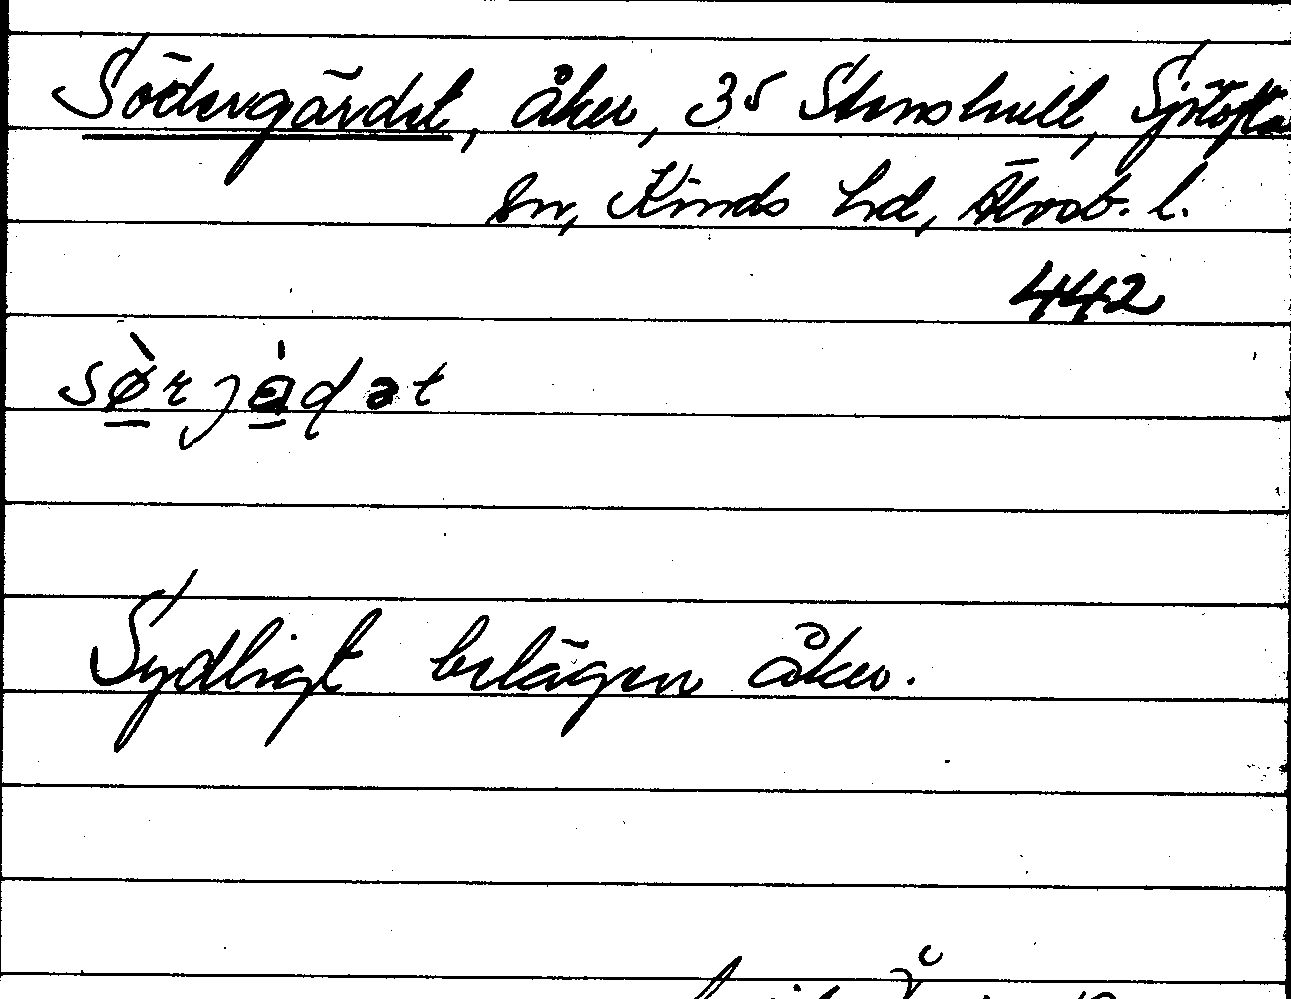 Södergärdet, åker, 35 Stenshult, Sjötofta
sn, Kinds hd, Älvsb. l.
442
sø̀rjə̀dət
Sydligt belägen åker.